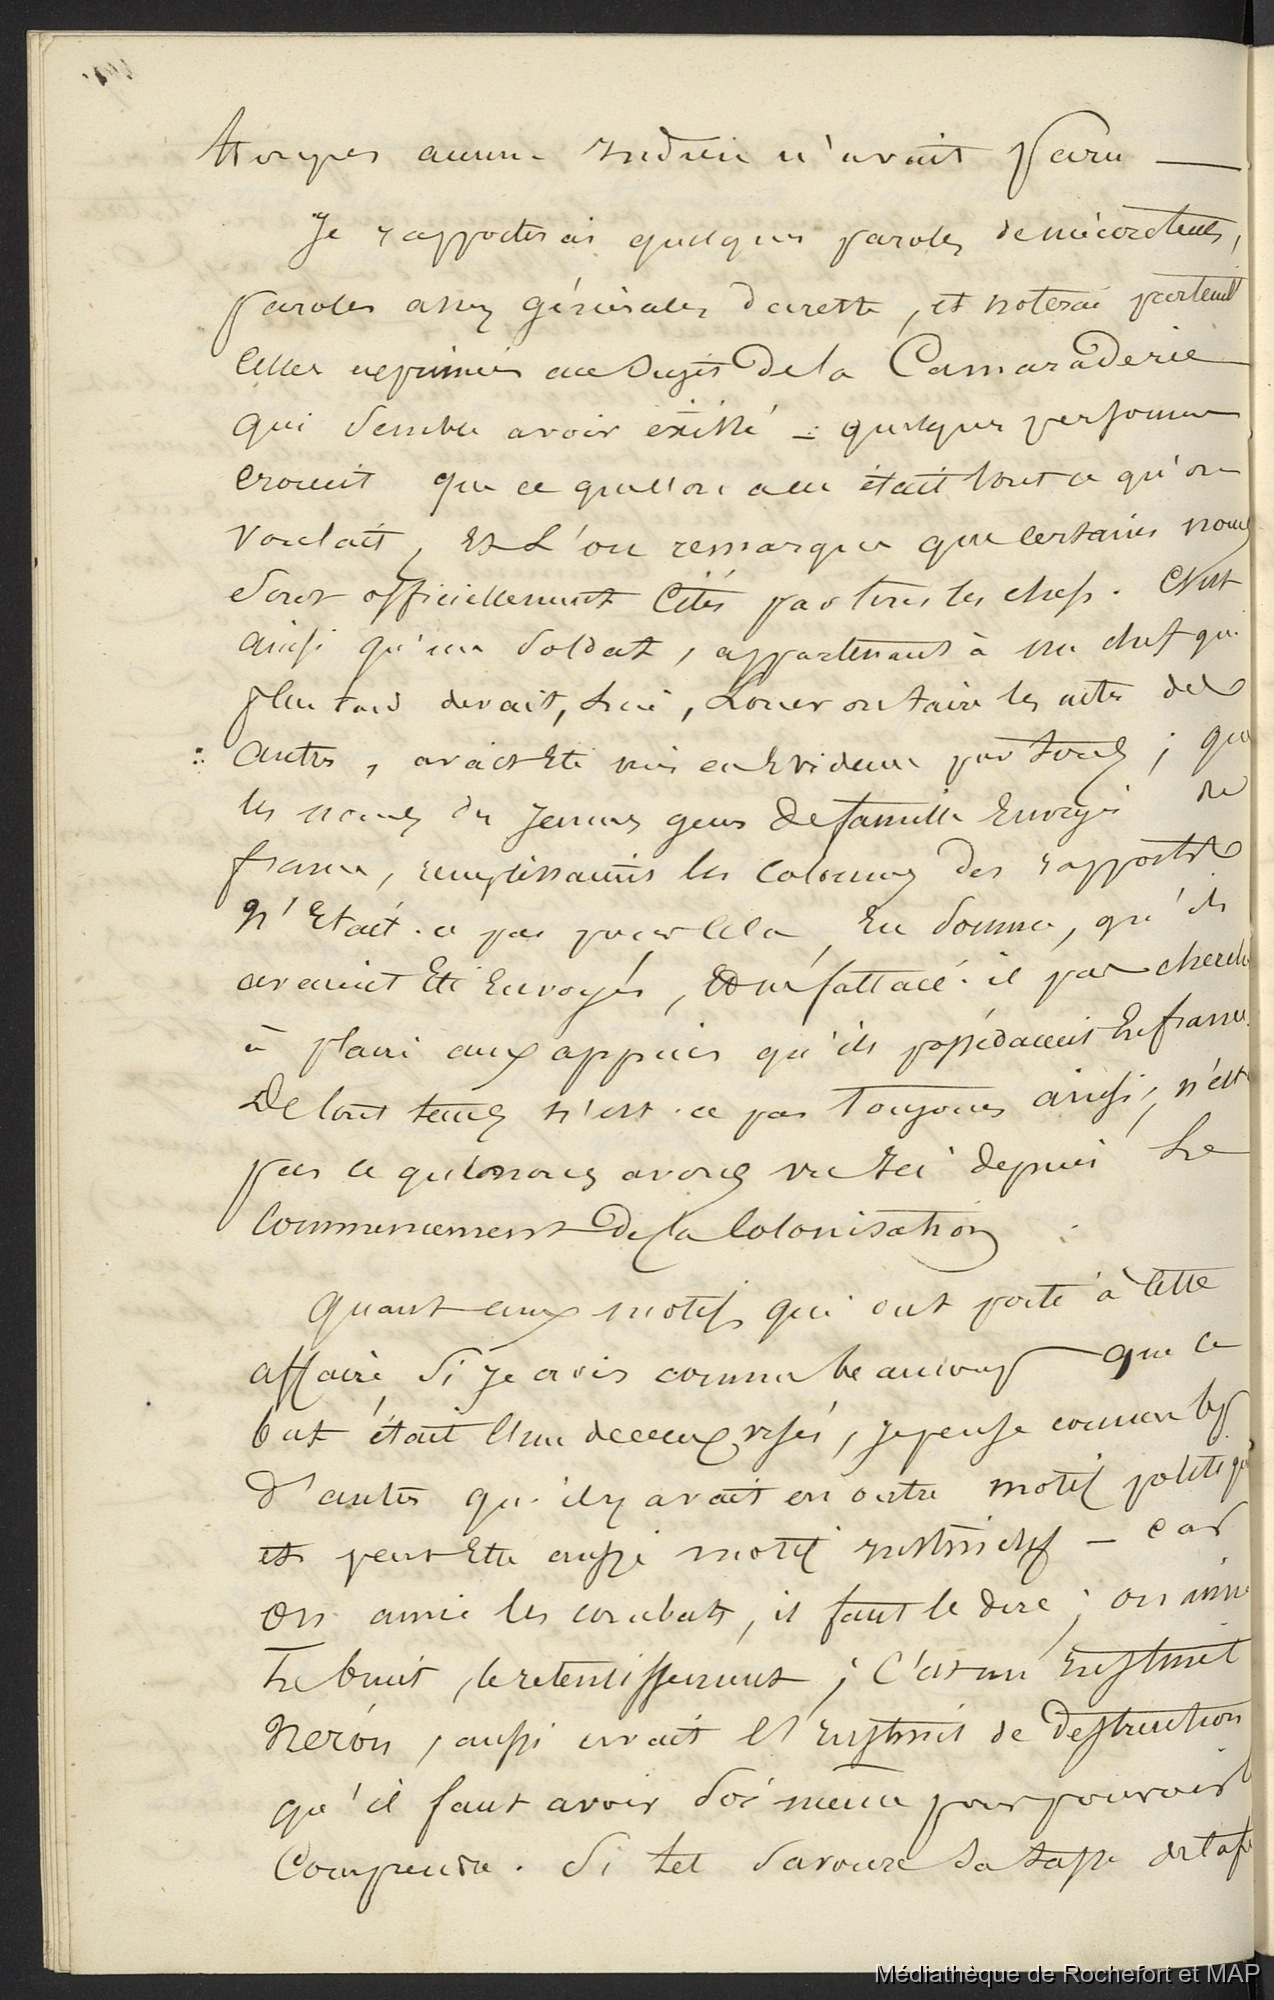 troupes aucun Indien n'avait paru —
Je rapporterai quelques paroles de mécontents,
paroles assez générales du reste, et noterai
celles exprimées au sujet de la Camaraderie
qui semble avoir existé — quelques personnes
croient que ce quell'on a eu était tout ce qu'on
voulait, Et L'on remarqua que certains noms
sont officiellement Cités par tous les chefs. C'est
ainsi qu'un Soldat, appartenant à un chef qui
plus tard devait, Lui, Louer ou taire les actes des
autres, avait Eté mis en Evidence par tous ; que
les noms de Jeunes gens de famille Envoyés de
france, remplissaient les Colonnes des rapports
N'Etait-ce pas pour Cela, En somme, qu'ils
avaient Eté Envoyés, Et ne fallait-il pas chercher
à plaire aux appuis qu'ils possédaient En france.
De tout temps n'est-ce pas Toujours ainsi, n'est
pas ce que nous avons vu Ici depuis Le
Commencement De la Colonisation
Quant aux motifs qui ont porté à Cette
affaire, Si Je crois comme beaucoup que ce
but était l'un de ceux visés, Je pense comme
d'autres qu'il y avait en outre motif politique
et peut Etre aussi motif Instinctif — car
On aime les combats, il faut le dire ; on aime
Le bruit, le retentissement ; C'est un Instinct
Néron, aussi vrait l'Instinct de Destruction
qu'il faut avoir Soi même pour pouvoir le
Comprendre. Si tel savoure sa tasse de
Médiathèque de Rochefort et MAP